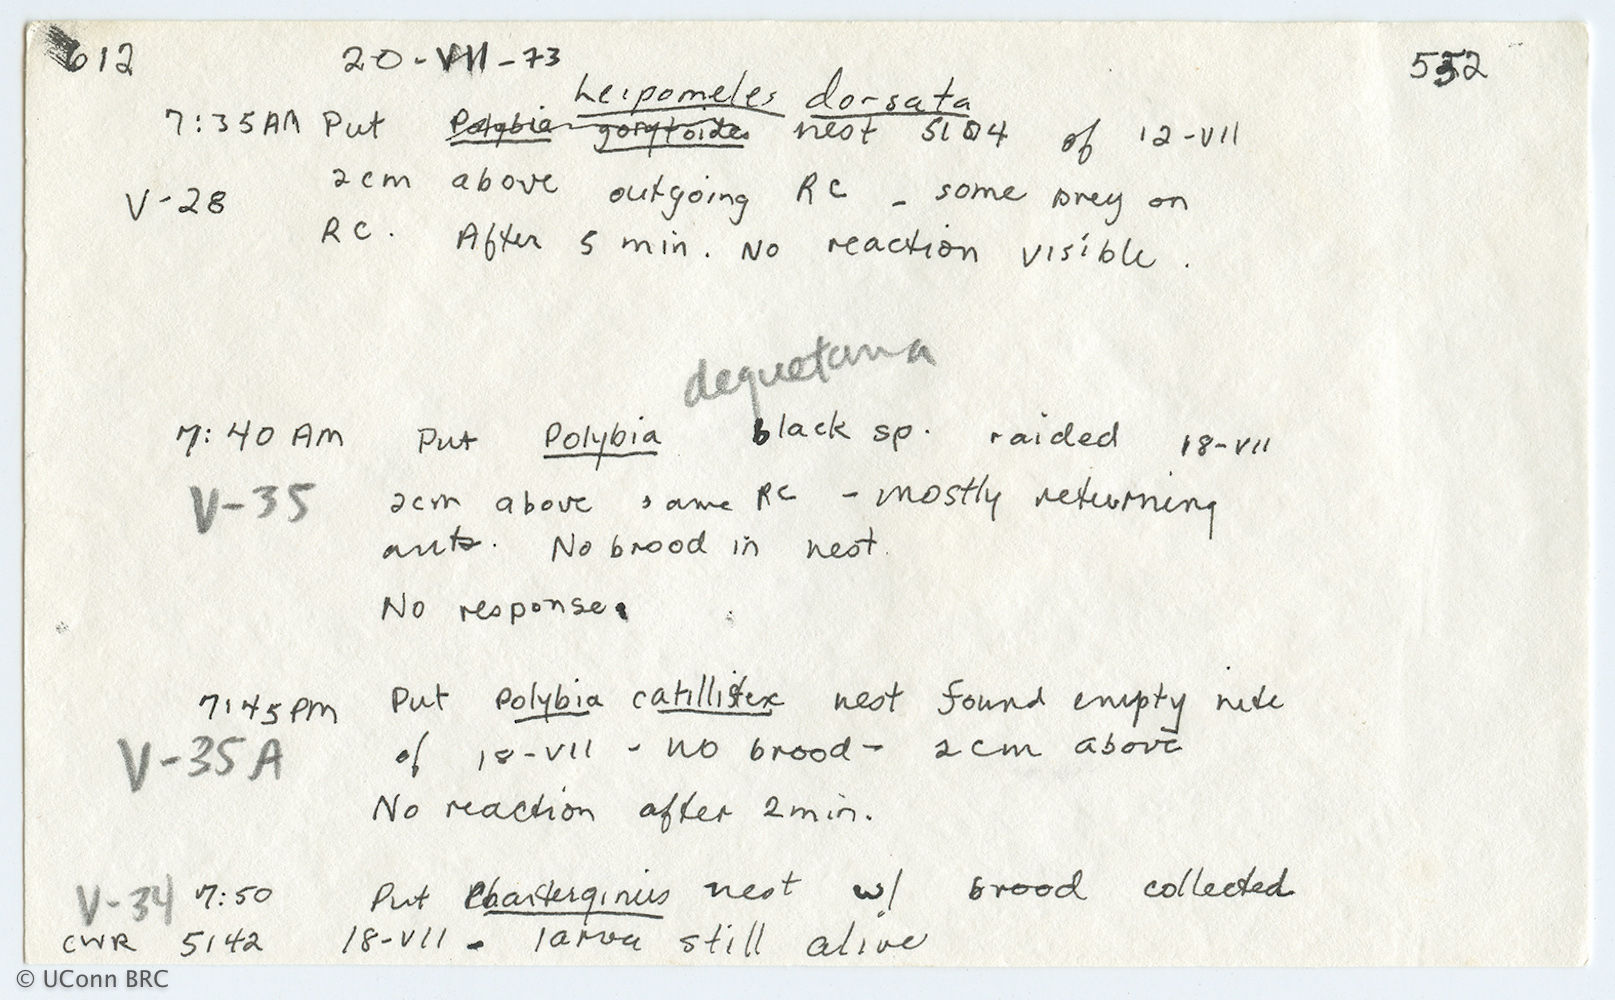 612 20-VII-73 552
Leipomeles dorsata
7:35AM Put Polybia gorytoides nest 5104 of 12-VII
V-28 2cm above outgoing RC - some prey on
RC. After 5 min. No reaction visible.
dequetana
7:40 AM Put Polybia black sp. raided 18-VII
V-35 2cm above same RC - mostly returning
ants. No brood in nest.
No response.
7:45PM Put Polybia catillifex nest found empty nite
V-35A of 18-VII - no brood - 2cm above
No reaction after 2min.
V-34 7:50 Put Charterginus nest w/ brood collected
CWR 5142 18-VII - larva still alive
© UConn BRC